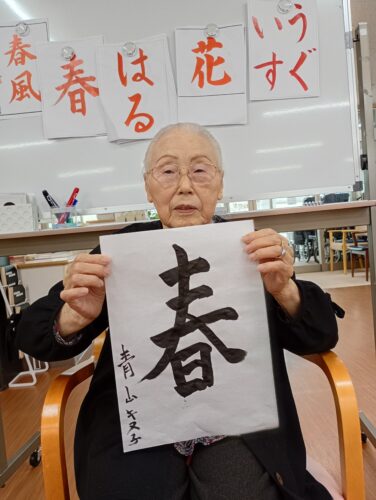 春風
春
はる
花
うぐ
いす
春
青山